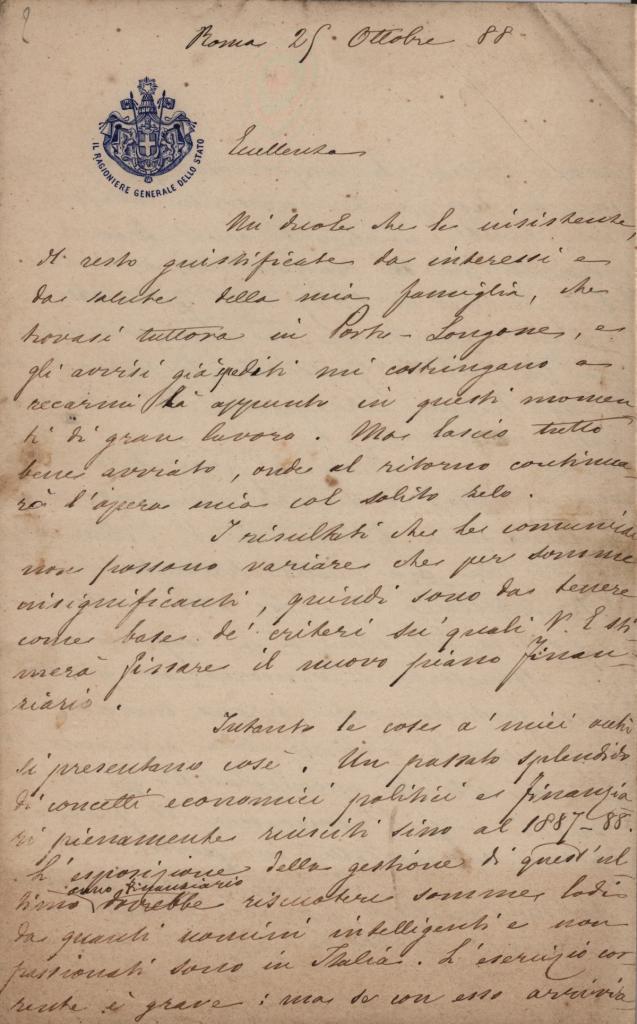 Roma 25 Ottobre 88
IL RAGIONIERE GENERALE DELLO STATO
Eccellenza
Mi duole che le insistenze,
del resto giustificate da interessi e
da salute della mia famiglia, che
trovasi tuttora in Porto-Longone, e
gli avvisi già spediti mi costringano a
recarmi là appunto in questi momen
ti di gran lavoro. Ma lascio tutto
bene avviato, onde al ritorno continue-
rà l'opera mia col solito zelo.
I risultati che le comunicai
non possono variare che per somme
insignificanti, quindi sono da tenere
come base de' criteri su' quali V. E. sti
merà fissare il nuovo piano finan-
ziario.
Intanto le cose a' miei occhi
si presentano così. Un passato splendido
di concetti economici politici e finanzia
ri pienamente riusciti sino al 1887-88.
L'esposizione della gestione di quest'ul
timo anno finanziario dovrebbe riscuotere somme lodi
da quanti uomini intelligenti e non
passionati sono in Italia. L'esercizio cor
rente è grave: ma se con esso arrivia